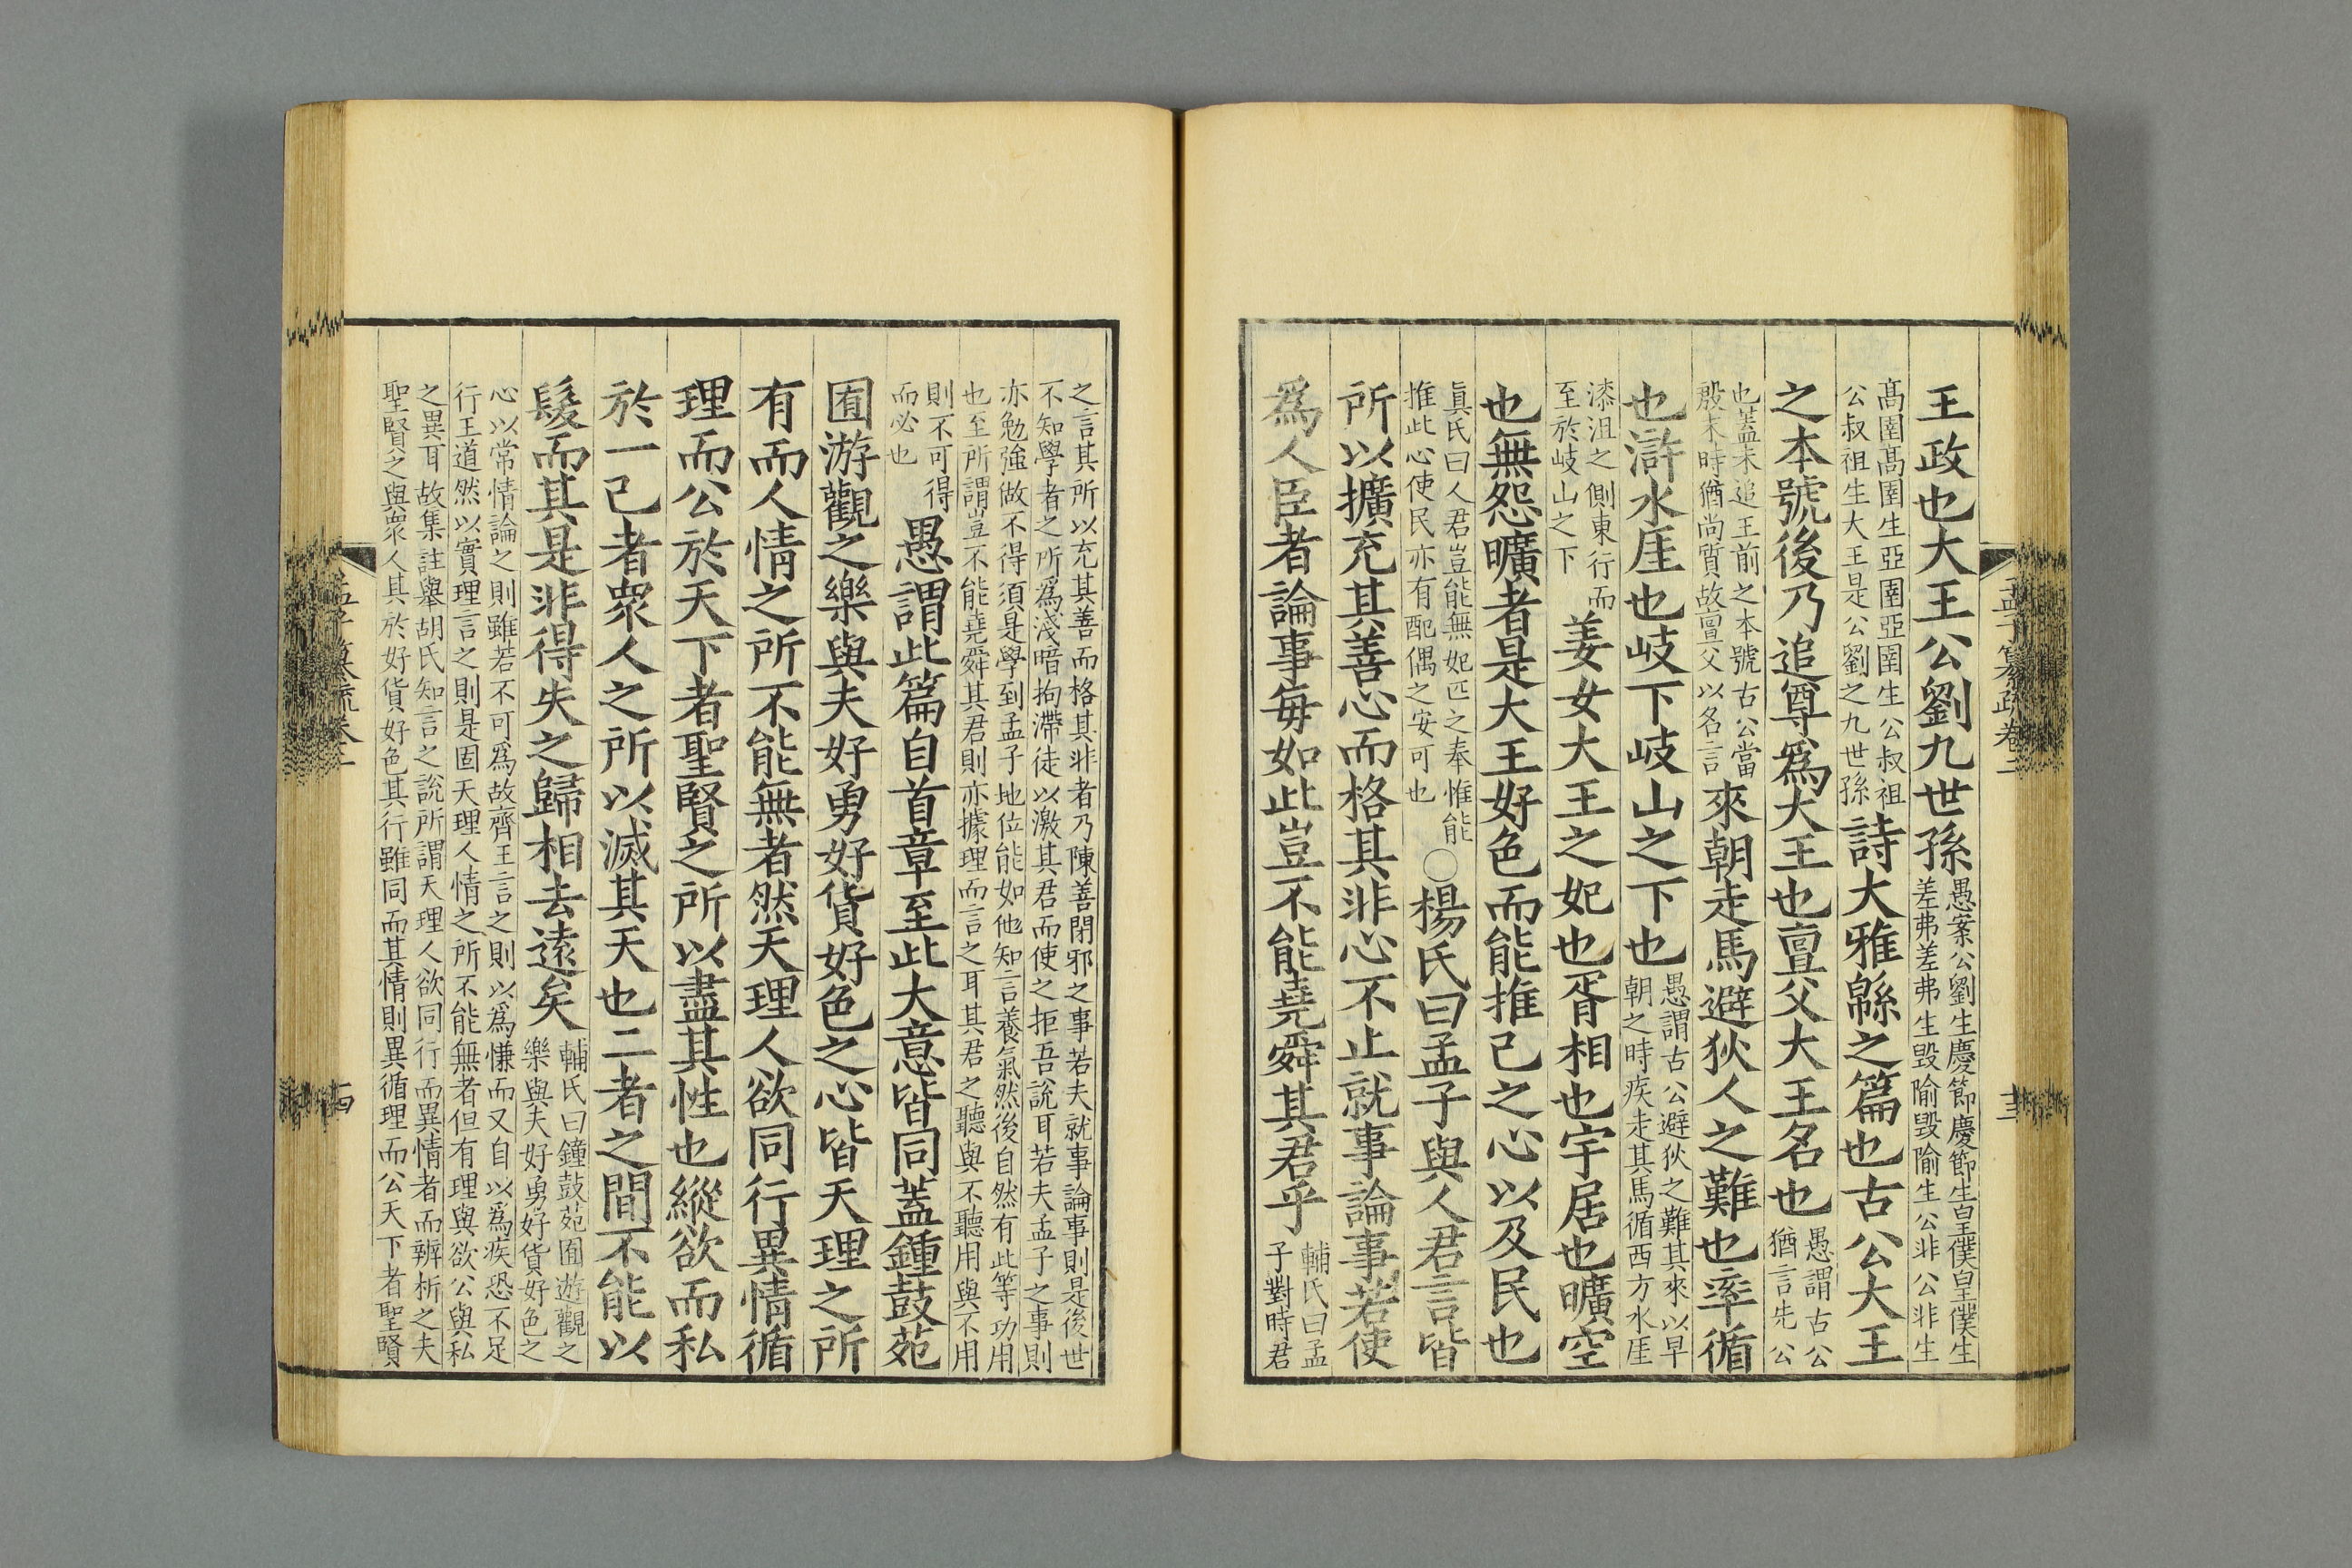 孟子纂疏卷二
王政也大王公劉九世孫愚案公劉生慶節慶節生皇僕皇僕生
差弗差弗生毀隃毀隃生公非公非生
高圉高圉生亞圉亞圉生公叔祖
公叔祖生大王是公劉之九世孫詩大雅緜之篇也古公大王
之本號後乃追尊爲大王也亶父大王名也愚謂古公
猶言先公
也蓋未追王前之本號古公當
殷末時猶尚質故亶父以名言來朝走馬避狄人之難也率循
也滸水厓也岐下岐山之下也愚謂古公避狄之難其來以早
朝之時疾走其馬循西方水厓
漆沮之側東行而
至於岐山之下姜女大王之妃也胥相也宇居也曠空
也無怨曠者是大王好色而能推己之心以及民也
眞氏曰人君豈能無妃匹之奉惟能
推此心使民亦有配偶之安可也○楊氏曰孟子與人君言皆
所以擴充其善心而格其非心不止就事論事若使
爲人臣者論事每如此豈不能堯舜其君乎輔氏曰孟
子對時君
之言其所以充其善而格其非者乃陳善閉邪之事若夫就事論事則是後世
不知學者之所爲淺暗拘滯徒以激其君而使之拒吾說耳若夫孟子之事則
亦勉強做不得須是學到孟子地位能如他知言養氣然後自然有此等功用
也至所謂豈不能堯舜其君則亦據理而言之耳其君之聽與不聽用與不用
則不可得
而必也愚謂此篇自首章至此大意皆同蓋鍾鼓苑
囿游觀之樂與夫好勇好貨好色之心皆天理之所
有而人情之所不能無者然天理人欲同行異情循
理而公於天下者聖賢之所以盡其性也縱欲而私
於一己者衆人之所以滅其天也二者之間不能以
髮而其是非得失之歸相去遠矣輔氏曰鐘鼓苑囿遊觀之
樂與夫好勇好貨好色之
心以常情論之則雖若不可爲故齊王言之則以爲慊而又自以爲疾恐不足
行王道然以實理言之則是固天理人情之所不能無者但有理與欲公與私
之異耳故集註舉胡氏知言之說所謂天理人欲同行而異情者而辨析之夫
聖賢之與衆人其於好貨好色其行雖同而其情則異循理而公天下者聖賢